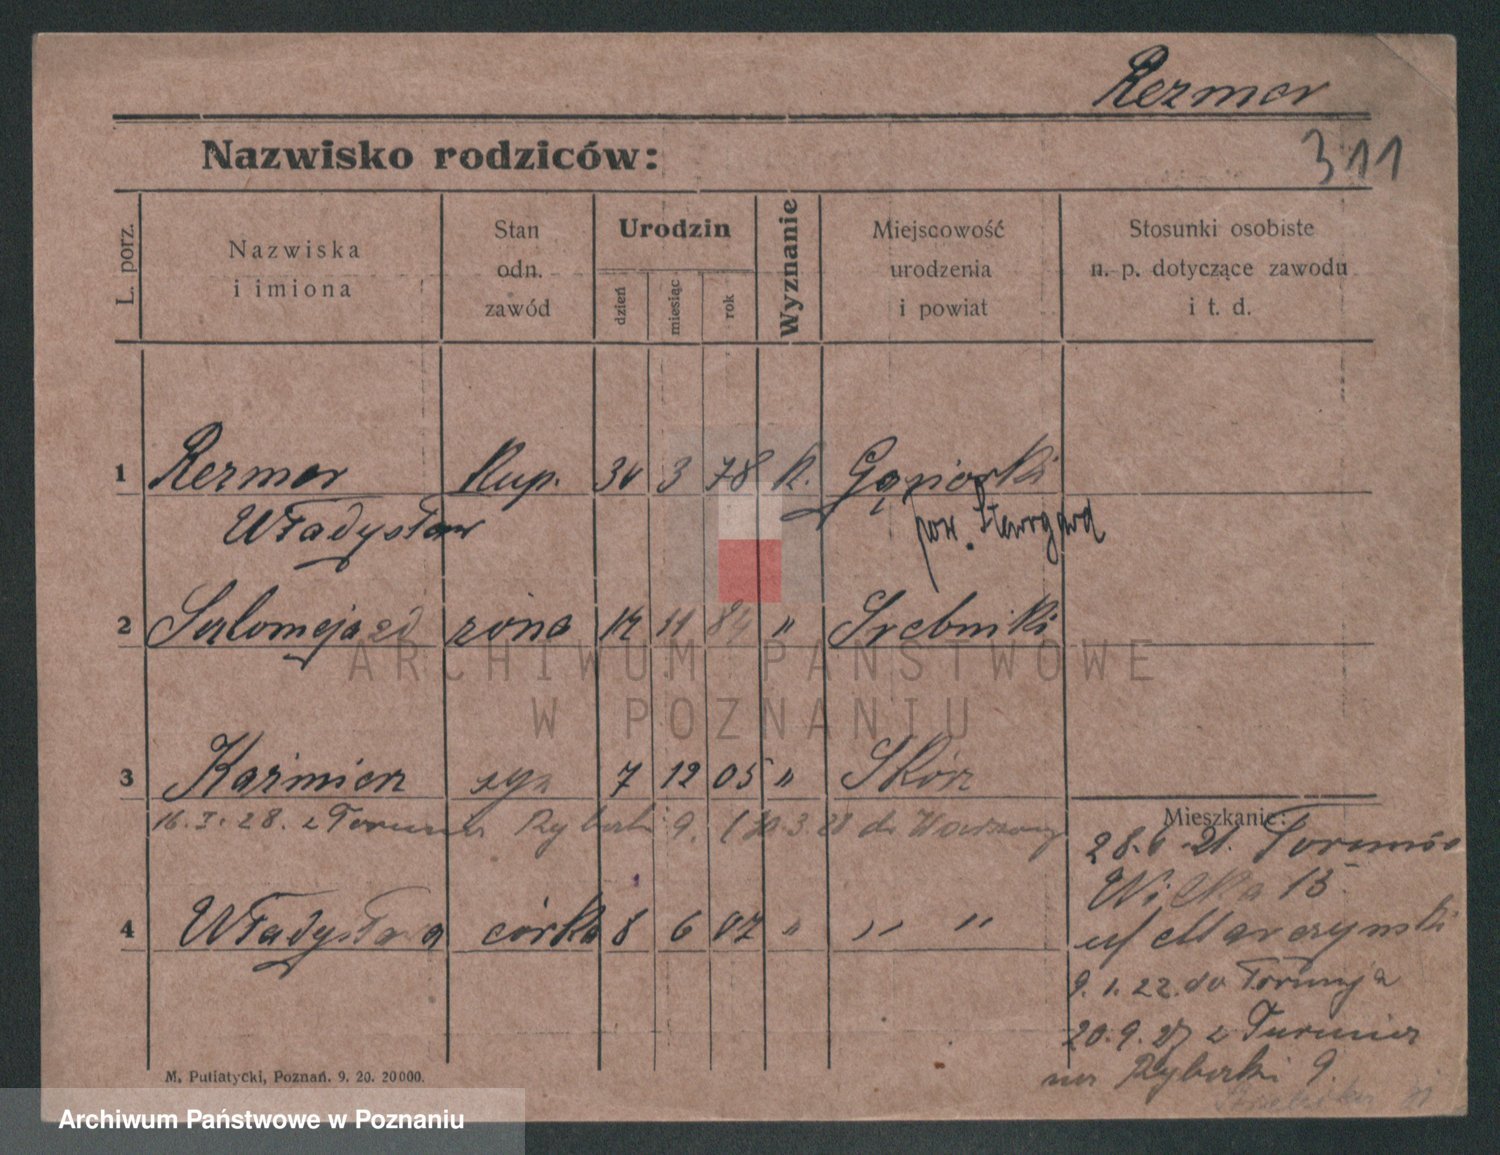 Rezmer
311
Nazwisko rodziców:
L. porz.
Nazwiska
i imiona
Stan
odn.
zawód
Urodzin
dzień
miesiąc
rok
Wyznanie
Miejscowość
urodzenia
i powiat
Stosunki osobiste
n. p. dotyczące zawodu
i t. d.
1 Rezmer Kup. 30 3 78 k. Gąsiorki
Władysław pow. Starogard
2 Salomeja żona 11 84 " Srebniki
3 Kazimierz syn 7 12 05 " Skórz
16.3.28. z Torunia Rybaki 9. 3.28 do Warszawy
4 Władysława córka 8 6 07 " " "
Mieszkanie:
28.6.21. Toruń
Wilka 15
u/ Marczynski
9.1.22. do Torunia
20.9.27 z Torunia
na Rybaki 9.
M. Putiatycki, Poznań. 9. 20. 20000.
ARCHIWUM PAŃSTWOWE
W POZNANIU
Archiwum Państwowe w Poznaniu